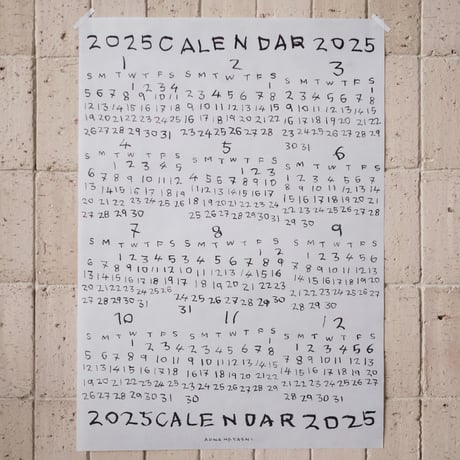 2025 CALENDAR 2025
1
S M T W T F S
1 2 3 4
5 6 7 8 9 10 11
12 13 14 15 16 17 18
19 20 21 22 23 24 25
26 27 28 29 30 31
2
S M T W T F S
1
2 3 4 5 6 7 8
9 10 11 12 13 14 15
16 17 18 19 20 21 22
23 24 25 26 27 28
3
S M T W T F S
1
2 3 4 5 6 7 8
9 10 11 12 13 14 15
16 17 18 19 20 21 22
23 24 25 26 27 28 29
30 31
4
S M T W T F S
1 2 3 4 5
6 7 8 9 10 11 12
13 14 15 16 17 18 19
20 21 22 23 24 25 26
27 28 29 30
5
S M T W T F S
1 2 3
4 5 6 7 8 9 10
11 12 13 14 15 16 17
18 19 20 21 22 23 24
25 26 27 28 29 30 31
6
S M T W T F S
1 2 3 4 5 6 7
8 9 10 11 12 13 14
15 16 17 18 19 20 21
22 23 24 25 26 27 28
29 30
7
S M T W T F S
1 2 3 4 5
6 7 8 9 10 11 12
13 14 15 16 17 18 19
20 21 22 23 24 25 26
27 28 29 30 31
8
S M T W T F S
1 2
3 4 5 6 7 8 9
10 11 12 13 14 15 16
17 18 19 20 21 22 23
24 25 26 27 28 29 30
31
9
S M T W T F S
1 2 3 4 5 6
7 8 9 10 11 12 13
14 15 16 17 18 19 20
21 22 23 24 25 26 27
28 29 30
10
S M T W T F S
1 2 3 4
5 6 7 8 9 10 11
12 13 14 15 16 17 18
19 20 21 22 23 24 25
26 27 28 29 30 31
11
S M T W T F S
1
2 3 4 5 6 7 8
9 10 11 12 13 14 15
16 17 18 19 20 21 22
23 24 25 26 27 28 29
30
12
S M T W T F S
1 2 3 4 5 6
7 8 9 10 11 12 13
14 15 16 17 18 19 20
21 22 23 24 25 26 27
28 29 30 31
2025 CALENDAR 2025